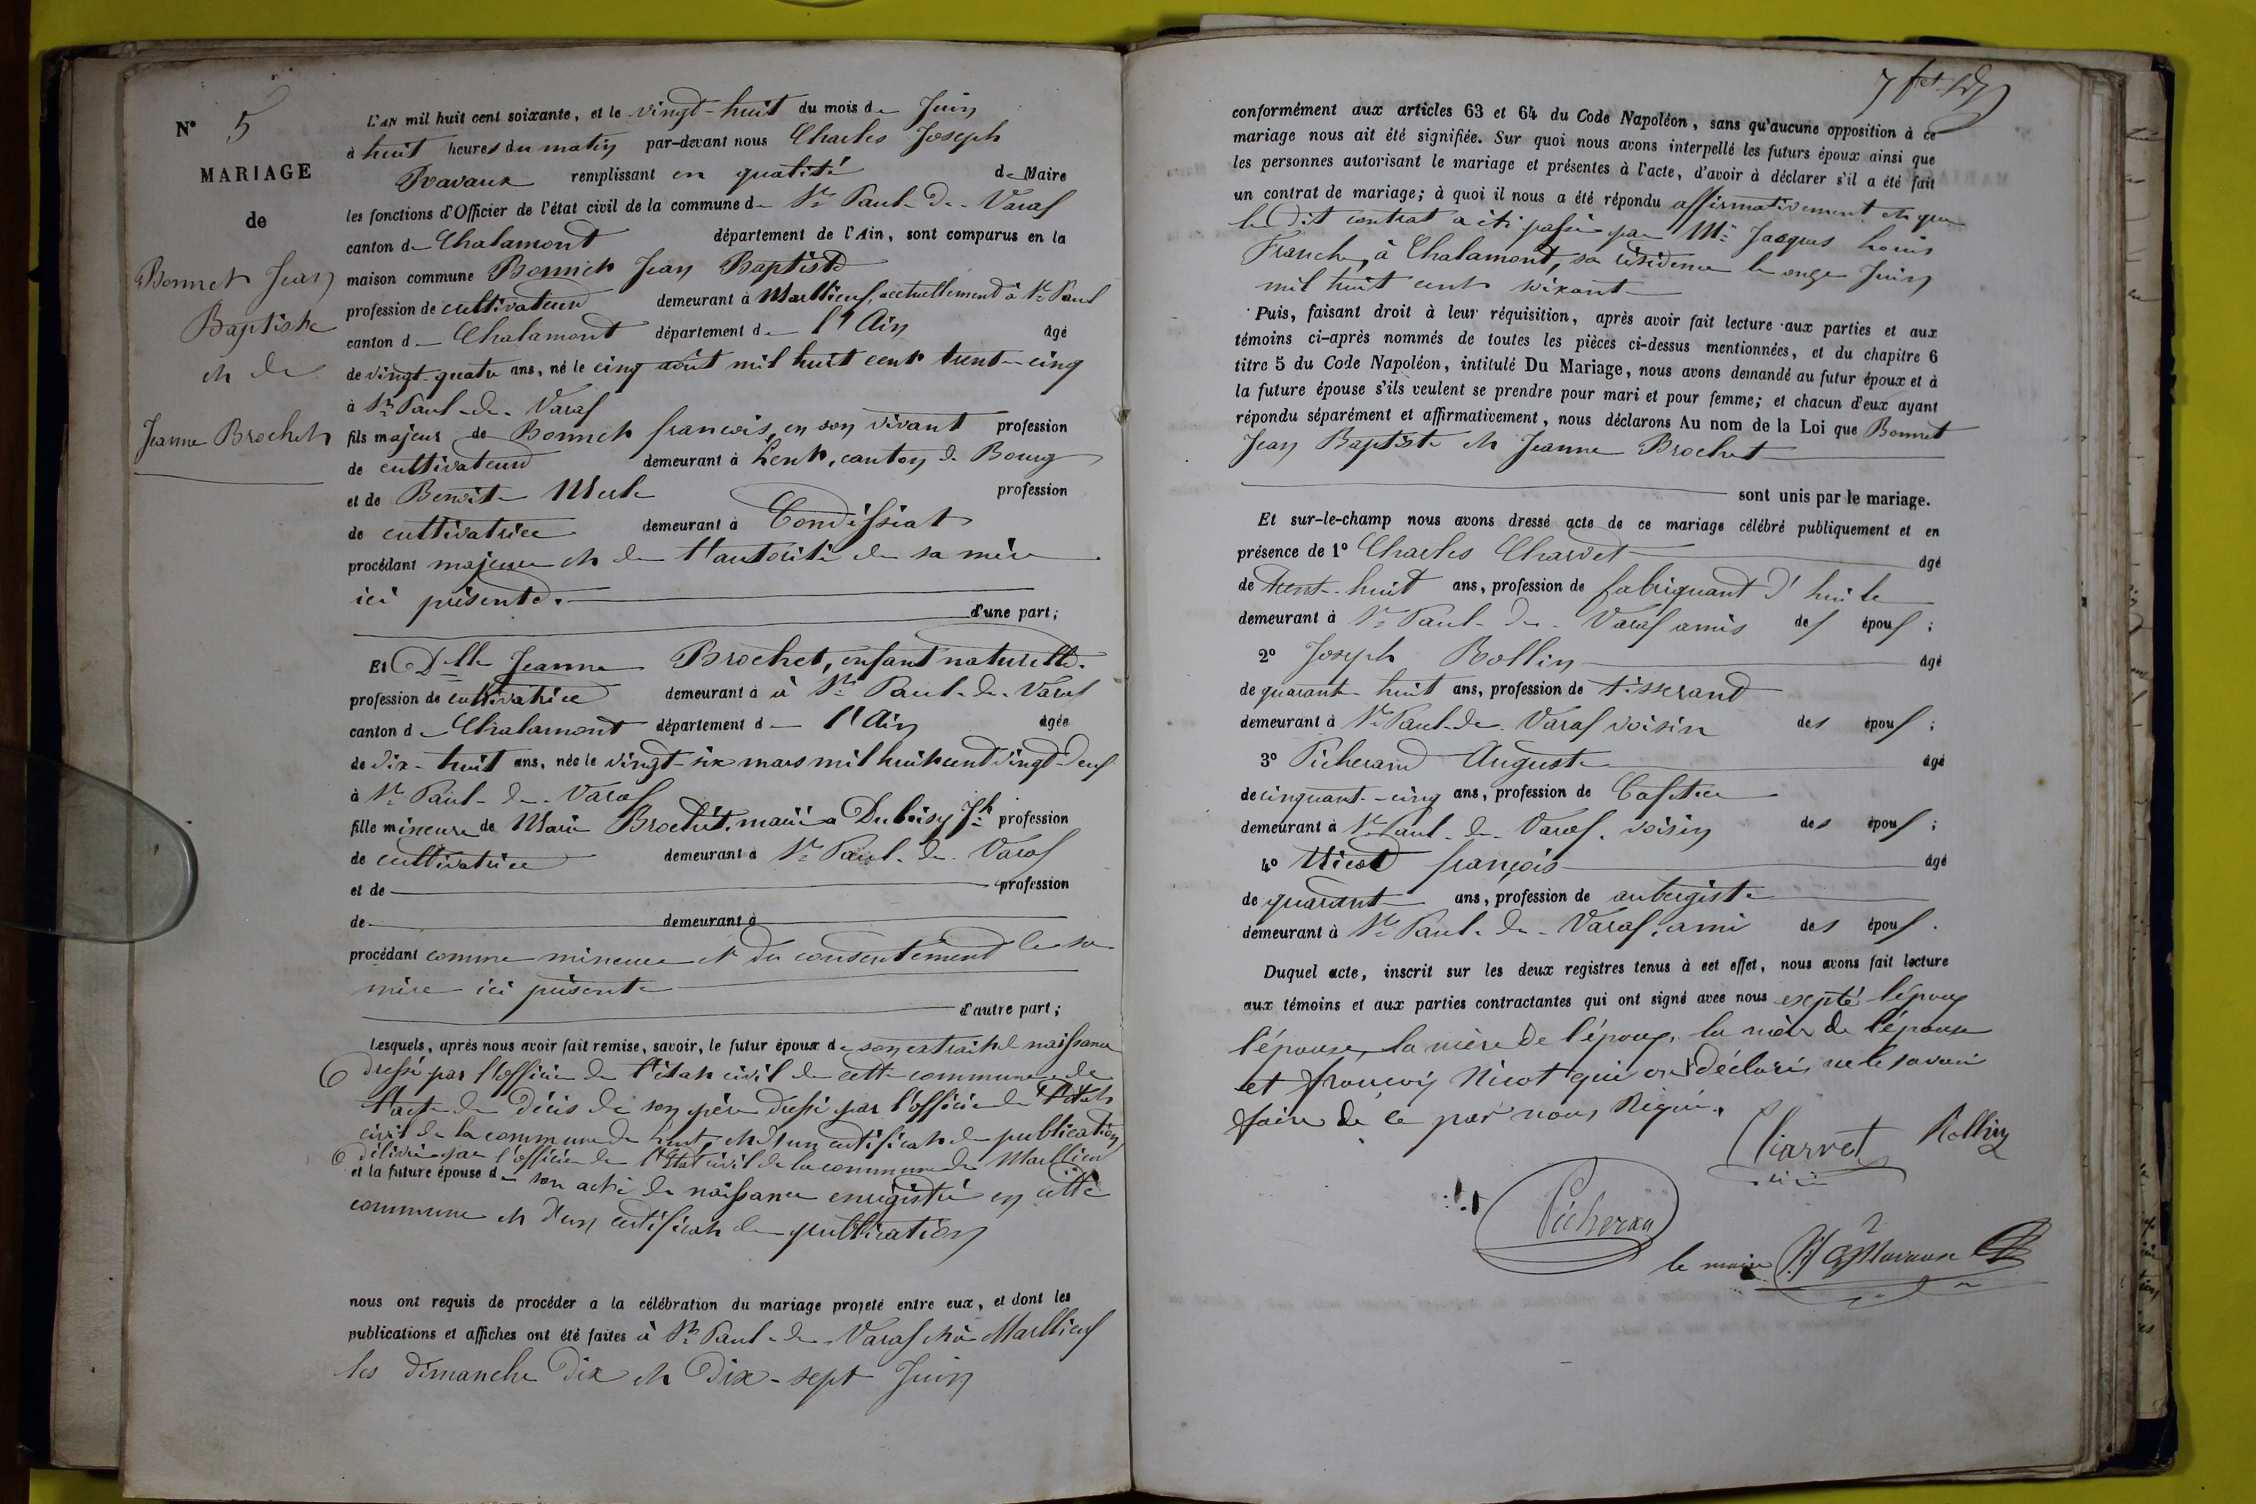 N° 5
MARIAGE
de
Bonnet Jean
Baptiste
et de
Jeanne Brochet
L'AN mil huit cent soixante, et le vingt-huit du mois de Juin
à huit heures du matin par-devant nous Charles Joseph
Ravaux remplissant en qualité de Maire
les fonctions d'Officier de l'état civil de la commune de St Paul-de-Varax
canton de Chalamont département de l'Ain, sont comparus en la
maison commune Bonnet Jean Baptiste
profession de cultivateur demeurant à Marlieux, actuellement à St Paul
canton de Chalamont département de l'Ain âgé
de vingt-quatre ans, né le cinq août mil huit cent trente-cinq
à St Paul-de-Varax
fils majeur de Bonnet françois, en son vivant profession
de cultivateur demeurant à Lent, canton de Bourg
et de Benoite Merle profession
de cultivatrice demeurant à Condeissiat
procédant majeure et de l'autorité de sa mère
ici présente. d'une part;
Et Dlle Jeanne Brochet, enfant naturelle.
profession de cultivatrice demeurant à à St Paul-de-Varax
canton de Chalamont département de l'Ain âgée
de dix-huit ans, née le vingt-six mars mil huit cent vingt-deux
à St Paul-de-Varax
fille mineure de Marie Brochet, mariée a Duboisy Jh profession
de cultivatrice demeurant à St Paul-de-Varax
et de profession
de demeurant à
procédant comme mineure et du consentement de sa
mère ici présente
d'autre part;
Lesquels, après nous avoir fait remise, savoir, le futur époux de son extrait de naissance
dressé par l'officier de l'état civil de cette commune de
l'acte de décès de son père dressé par l'officier de l'état
civil de la commune de Lent, et d'un certificat de publication
délivré par l'officier de l'état civil de la commune de Marlieux
et la future épouse de son acte de naissance enregistré en cette
commune et d'un certificat de publication
nous ont requis de procéder a la célébration du mariage projeté entre eux, et dont les
publications et affiches ont été faites à St Paul-de-Varax et à Marlieux
les dimanche dix et dix-sept Juin
conformément aux articles 63 et 64 du Code Napoléon, sans qu'aucune opposition à ce
mariage nous ait été signifiée. Sur quoi nous avons interpellé les futurs époux ainsi que
les personnes autorisant le mariage et présentes à l'acte, d'avoir à déclarer s'il a été fait
un contrat de mariage; à quoi il nous a été répondu affirmativement et que
le dit contrat a été passé par Me Jacques Louis
Franche, à Chalamont, sa résidence le onze Juin
mil huit cent soixante
Puis, faisant droit à leur réquisition, après avoir fait lecture aux parties et aux
témoins ci-après nommés de toutes les pièces ci-dessus mentionnées, et du chapitre 6
titre 5 du Code Napoléon, intitulé Du Mariage, nous avons demandé au futur époux et à
la future épouse s'ils veulent se prendre pour mari et pour femme; et chacun d'eux ayant
répondu séparément et affirmativement, nous déclarons Au nom de la Loi que Bonnet
Jean Baptiste et Jeanne Brochet
sont unis par le mariage.
Et sur-le-champ nous avons dressé acte de ce mariage célébré publiquement et en
présence de 1° Charles Charvet âgé
de trente-huit ans, profession de fabriquant d'huile
demeurant à St Paul-de-Varax amis des époux;
2° Joseph Rollin âgé
de quarante-huit ans, profession de tisserand
demeurant à St Paul-de-Varax voisin des époux;
3° Picherand Auguste âgé
de cinquante-cinq ans, profession de Cafetier
demeurant à St Paul-de-Varax, voisin des époux;
4° Nicod françois âgé
de quarante ans, profession de aubergiste
demeurant à St Paul-de-Varax, ami des époux.
Duquel acte, inscrit sur les deux registres tenus à cet effet, nous avons fait lecture
aux témoins et aux parties contractantes qui ont signé avec nous expté l'époux
l'épouse, la mère de l'époux, la mère de l'épouse
et françois Nicot qui ont déclarés ne le savoir
faire de ce par nous Réquis.
Charvet Rollin
Picheran
le maire Ravaux